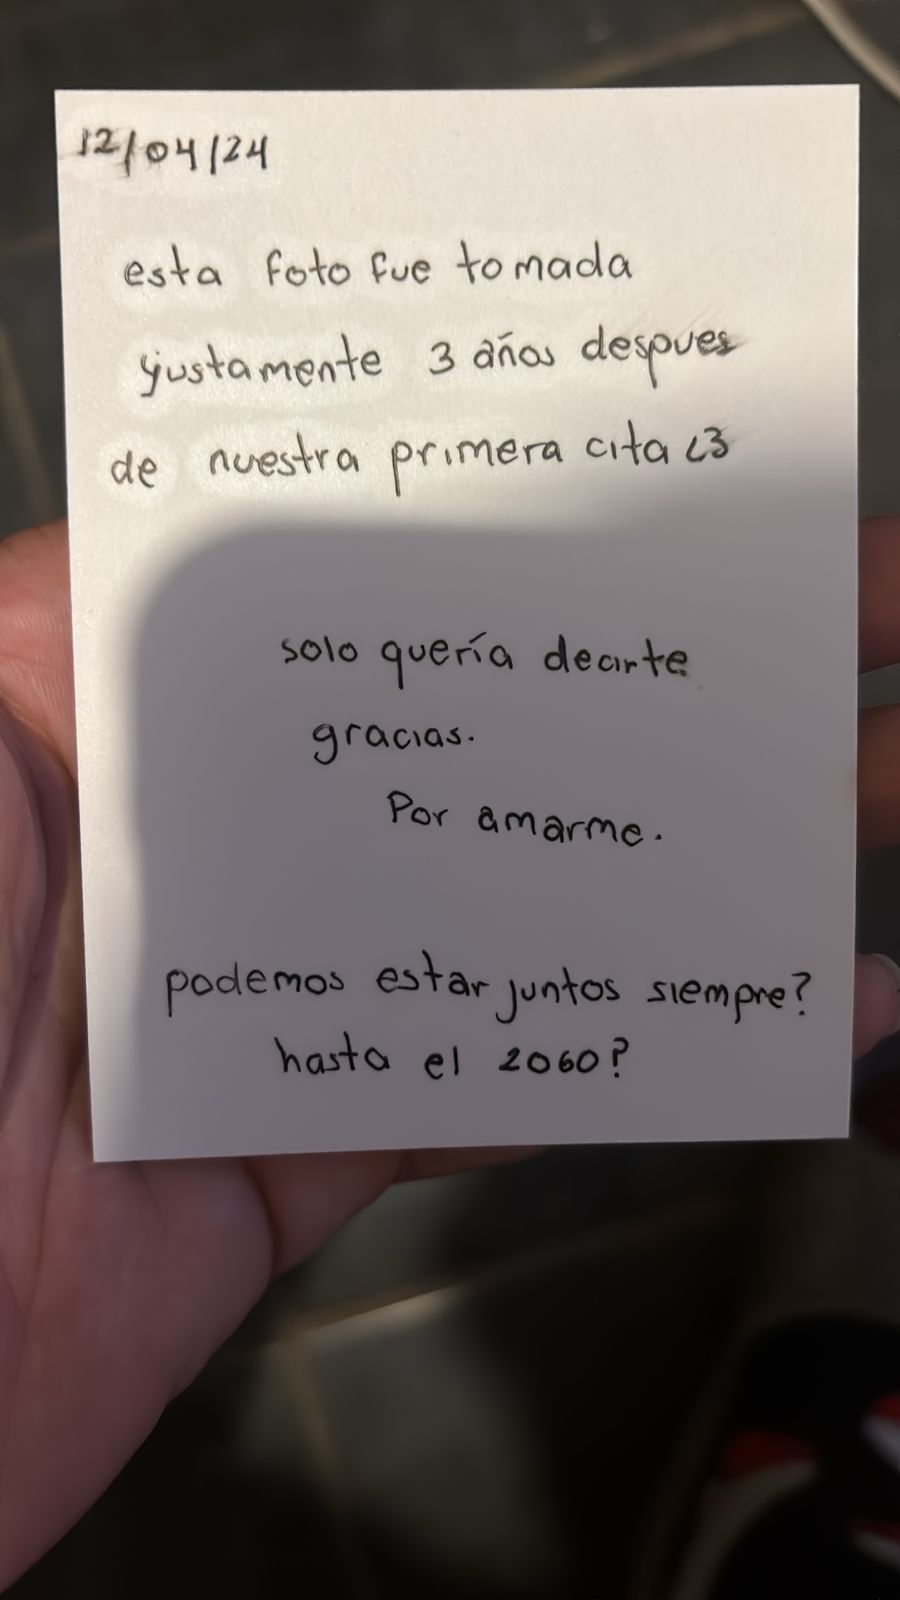 12/04/24
esta foto fue tomada
justamente 3 años despues
de nuestra primera cita <3
solo quería decirte
gracias.
Por amarme.
podemos estar juntos siempre?
hasta el 2060?